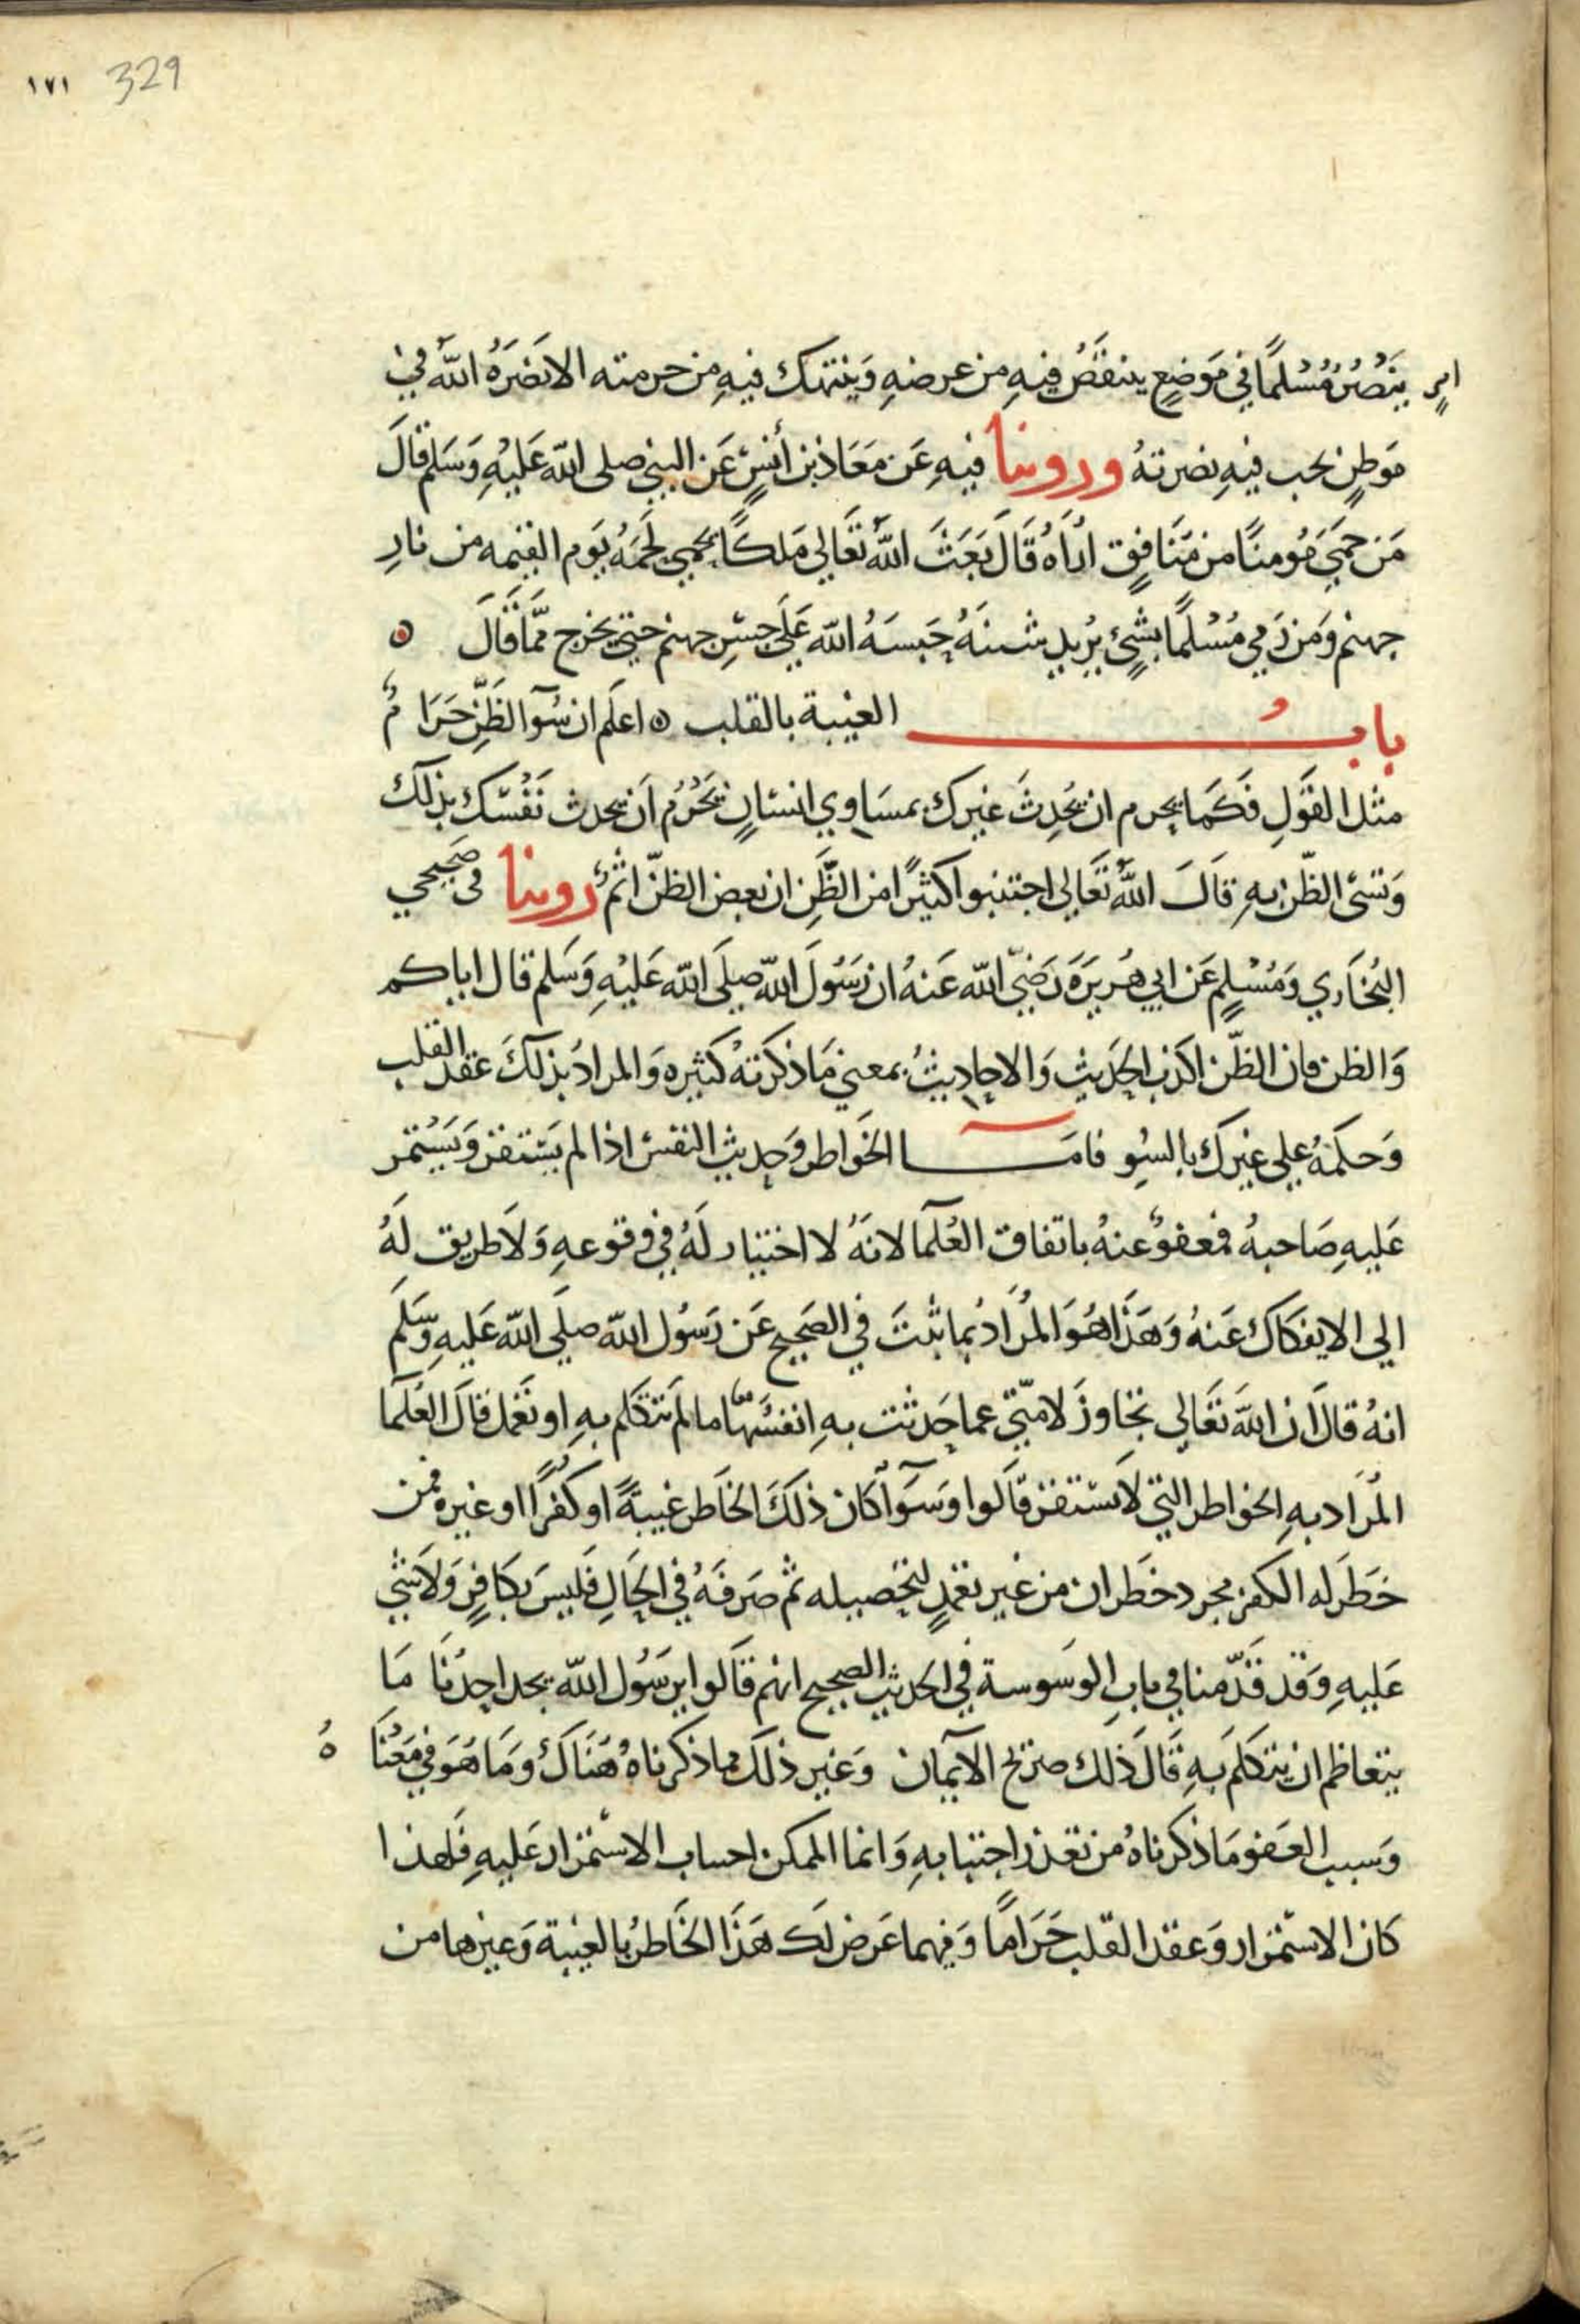 ١٧١ 329
امرٍ ينصُرُ مُسْلمًا في مَوضعٍ ينتقَصُ فيهِ من عرضهِ وَينتهك فيهِ من حرمته الا نَصَرَهُ اللّه في
مَوطِنٍ يحب فيهِ نصرتهُ وروينا فيهِ عَن مَعَاذ بن أنسٍ عَن النبي صلى الله عَليْهِ وَسَلم قالَ
مَن حمَيَ مُومنًا من مُنَافِقٍ اُرَاهُ قَالَ بَعَثَ اللّه تَعَالي مَلكًا يحمي لحمَهُ يَوم القيمه من نارِ
جهنم وَمَن رَمي مُسْلمًا بشيءٍ يُريد شينَهُ حَبسَهُ الله عَلَي جسْرِ جهنم حتي يخرج ممَّا قَالَ ه
بابُ الغيبة بالقلب ه اعلَم ان سُوٓ الظَّنِّ حَرَامٌ
مثل القَولِ فَكَمَا يحرم ان تُحَدِثَ غيرك بمسَاوي انسَانٍ يَحْرُم اَن تحدث نَفْسَك بذلك
وَتسئ الظّن بهِ قالَ اللّه تَعَالي اجتنبوا كثيرًا من الظَّنِ ان بعض الظنّ اثمٌ روينا في صَحيحي
البُخَاري وَمُسْلِمٍ عَن ابي هُرَيرَةَ رَضيَ الله عَنهُ ان رَسُولَ اللّه صلَي الله عَليْهِ وَسَلم قال اياكم
وَالظن فان الظّن اكذب الحَديث وَالاحاديثُ بمعني مَا ذكَرتهُ كثيره وَالمرادُ بذلكَ عقد القلب
وَحكمَهُ علي غيرك بالسُوِ فامَا الخَواطر وَحديث النفس اذا لم يَستقر وَيَسْتمر
عَليهِ صَاحبهُ فمعفوٌ عنهُ باتفاق العُلَمآ لانهُ لا اختيار لَهُ في وقوعهِ وَلاَ طريق لَهُ
الي الانفكاك عَنهُ وَهَذَا هُوَ المُرَادُ بما ثبتَ في الصَحيح عَن رَسُول اللّه صلَي الله عَليهِ وَسَلم
انهُ قالَ ان اللّهَ تعَالي تجاوزَ لامّتي عما حَدثت بهِ انفسُهَا ما لم تتكلم بهِ او تَعْمل قالَ العُلمَآ
المُرَاد بهِ الخواطر التي لاَ تستقر قَالوا وَسَوَآٌ كَان ذلكَ الخَاطر غيبةً او كفرًا او غيره فمن
خطَر له الكفر مجرد خطَران من غير تعمدٍ لتحصيله ثم صَرفَهُ في الحَالِ فَليسَ بكافِرٍ وَلاَ شئ
عَليهِ وَقد قَدّمنا في بابِ الوَسوسة في الحَديث الصحيح انهم قَالوا يرسُول اللّه يجد احدُنَا مَا
يتعاظم ان يتكَلم بهِ قَالَ ذَلك صريح الآيمان وَغير ذلك مما ذكرناهُ هُنَاكَ وَمَا هُوَ في مَعْنَاهُ
وَسبب العَفو مَا ذكرناهُ من تعذر اجتنابهِ وَانما الممكن احساب الاستمرار عَليهِ فَلهذا
كَان الاستمرار وَعقد القَلب حَرَامًا وَفيهما عَرض لَك هَذَا الخَاطرُ بالغيبة وَغيرها من